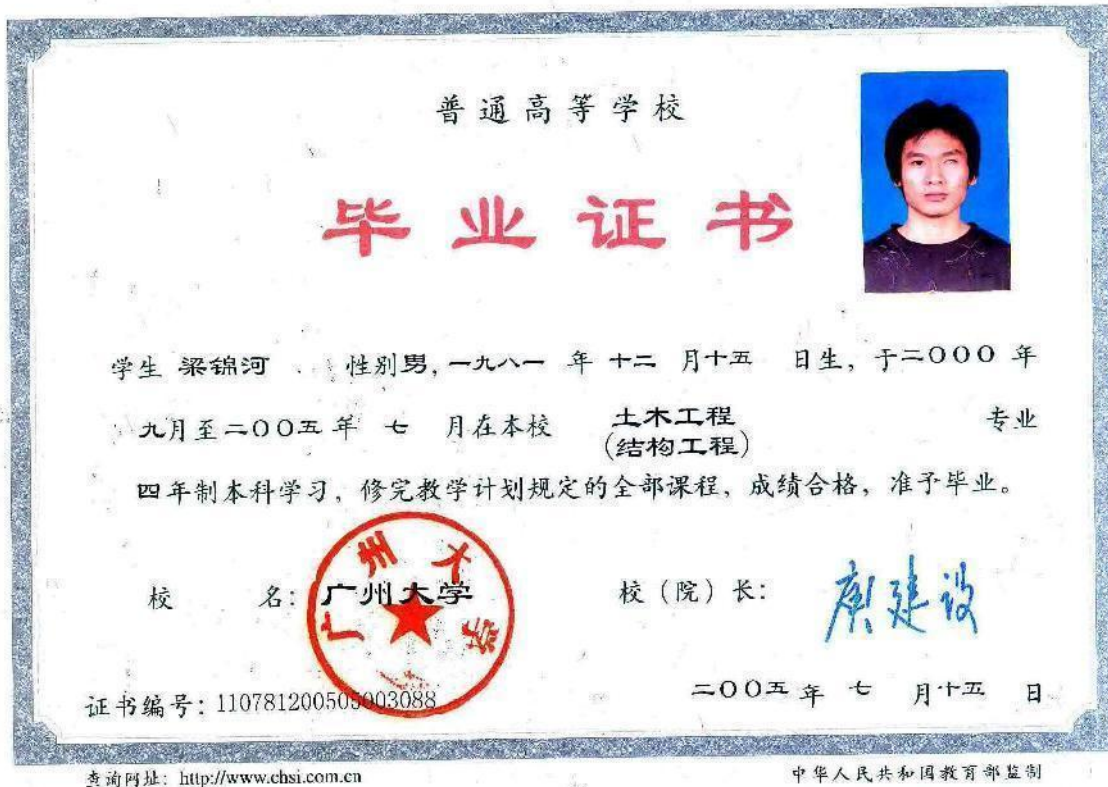 普通高等学校
毕业证书
学生 梁锦河 性别男, 一九八一 年 十二 月十五 日生, 于二〇〇〇 年
九月至二〇〇五年 七 月在本校 土木工程 专业
(结构工程)
四年制本科学习, 修完教学计划规定的全部课程, 成绩合格, 准予毕业。
广州大学
校 名: 广州大学 校（院）长: 庾建设
证书编号: 110781200505003088 二〇〇五 年 七 月十五 日
查询网址: http://www.chsi.com.cn 中华人民共和国教育部监制